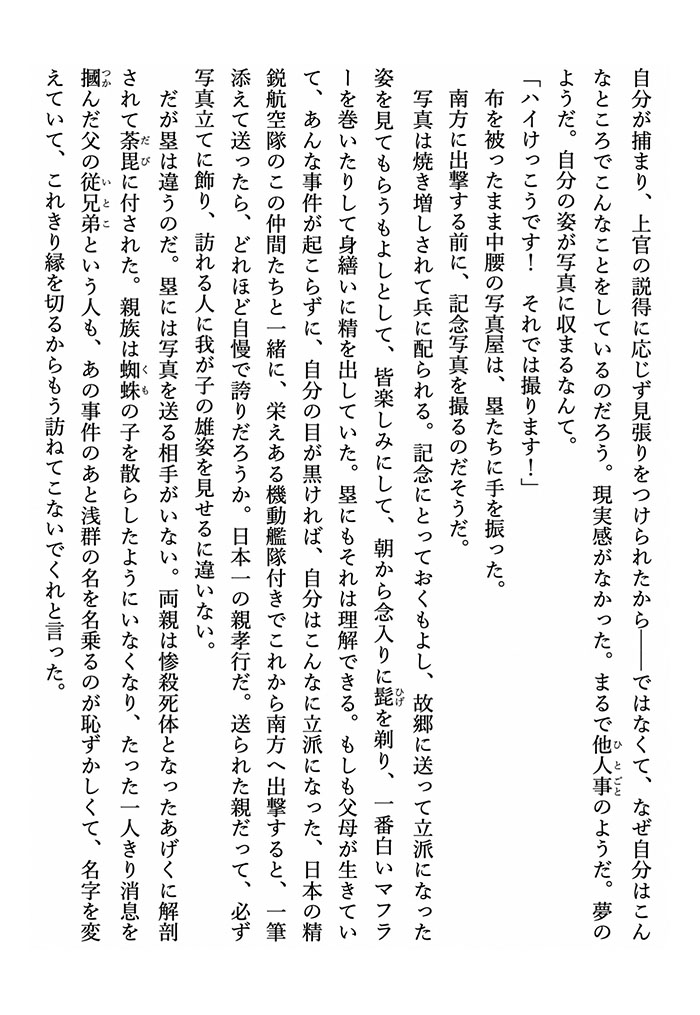 自分が捕まり、上官の説得に応じず見張りをつけられたから――ではなくて、なぜ自分はこん
なところでこんなことをしているのだろう。現実感がなかった。まるで他人事のようだ。夢の
ようだ。自分の姿が写真に収まるなんて。
「ハイけっこうです！　それでは撮ります！」
　布を被ったまま中腰の写真屋は、塁たちに手を振った。
　南方に出撃する前に、記念写真を撮るのだそうだ。
　写真は焼き増しされて兵に配られる。記念にとっておくもよし、故郷に送って立派になった
姿を見てもらうもよしとして、皆楽しみにして、朝から念入りに髭を剃り、一番白いマフラ
ーを巻いたりして身繕いに精を出していた。塁にもそれは理解できる。もしも父母が生きてい
て、あんな事件が起こらずに、自分の目が黒ければ、自分はこんなに立派になった、日本の精
鋭航空隊のこの仲間たちと一緒に、栄えある機動艦隊付きでこれから南方へ出撃すると、一筆
添えて送ったら、どれほど自慢で誇りだろうか。日本一の親孝行だ。送られた親だって、必ず
写真立てに飾り、訪れる人に我が子の雄姿を見せるに違いない。
　だが塁は違うのだ。塁には写真を送る相手がいない。両親は惨殺死体となったあげくに解剖
されて荼毘に付された。親族は蜘蛛の子を散らしたようにいなくなり、たった一人きり消息を
摑んだ父の従兄弟という人も、あの事件のあと浅群の名を名乗るのが恥ずかしくて、名字を変
えていて、これきり縁を切るからもう訪ねてこないでくれと言った。